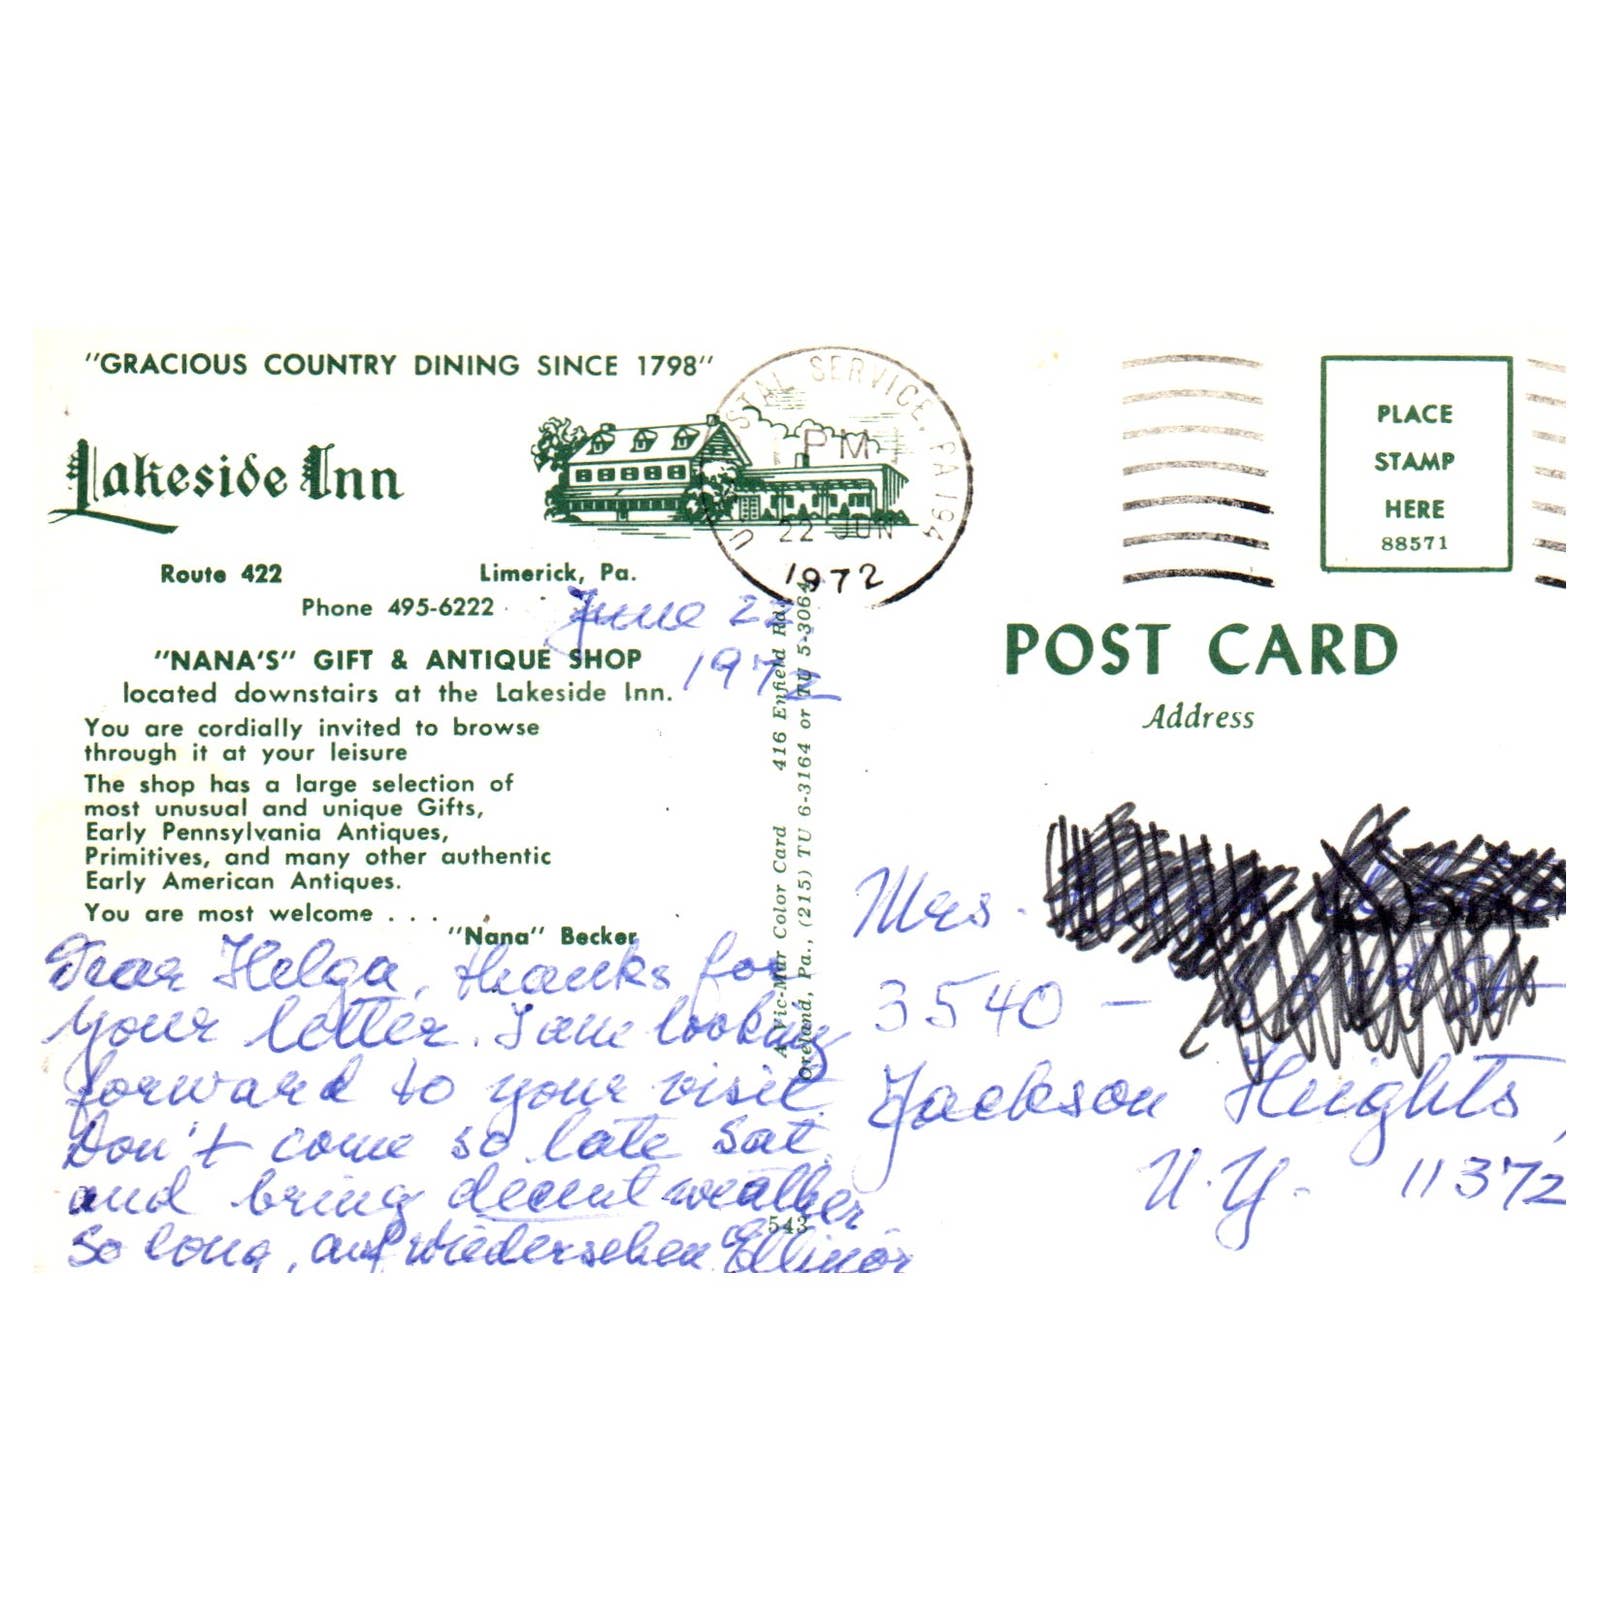 "GRACIOUS COUNTRY DINING SINCE 1798"
Lakeside Inn
Route 422 Limerick, Pa.
Phone 495-6222
"NANA'S" GIFT & ANTIQUE SHOP
located downstairs at the Lakeside Inn.
You are cordially invited to browse
through it at your leisure
The shop has a large selection of
most unusual and unique Gifts,
Early Pennsylvania Antiques,
Primitives, and many other authentic
Early American Antiques.
You are most welcome . . .
"Nana" Becker
June 22,
1972
Dear Helga, thanks for
your letter. I am looking
forward to your visit.
Don't come so late Sat.
and bring decent weather.
So long, auf wiedersehen Ellinor
A Vic-Mar Color Card 416 Enfield Rd.,
Oreland, Pa., (215) TU 6-3164 or TU 5-3064
543
U STAL SERVICE, PA 194
PM
22 JUN
1972
PLACE
STAMP
HERE
88571
POST CARD
Address
Mrs.
3540 -
Jackson Heights,
N.Y. 11372